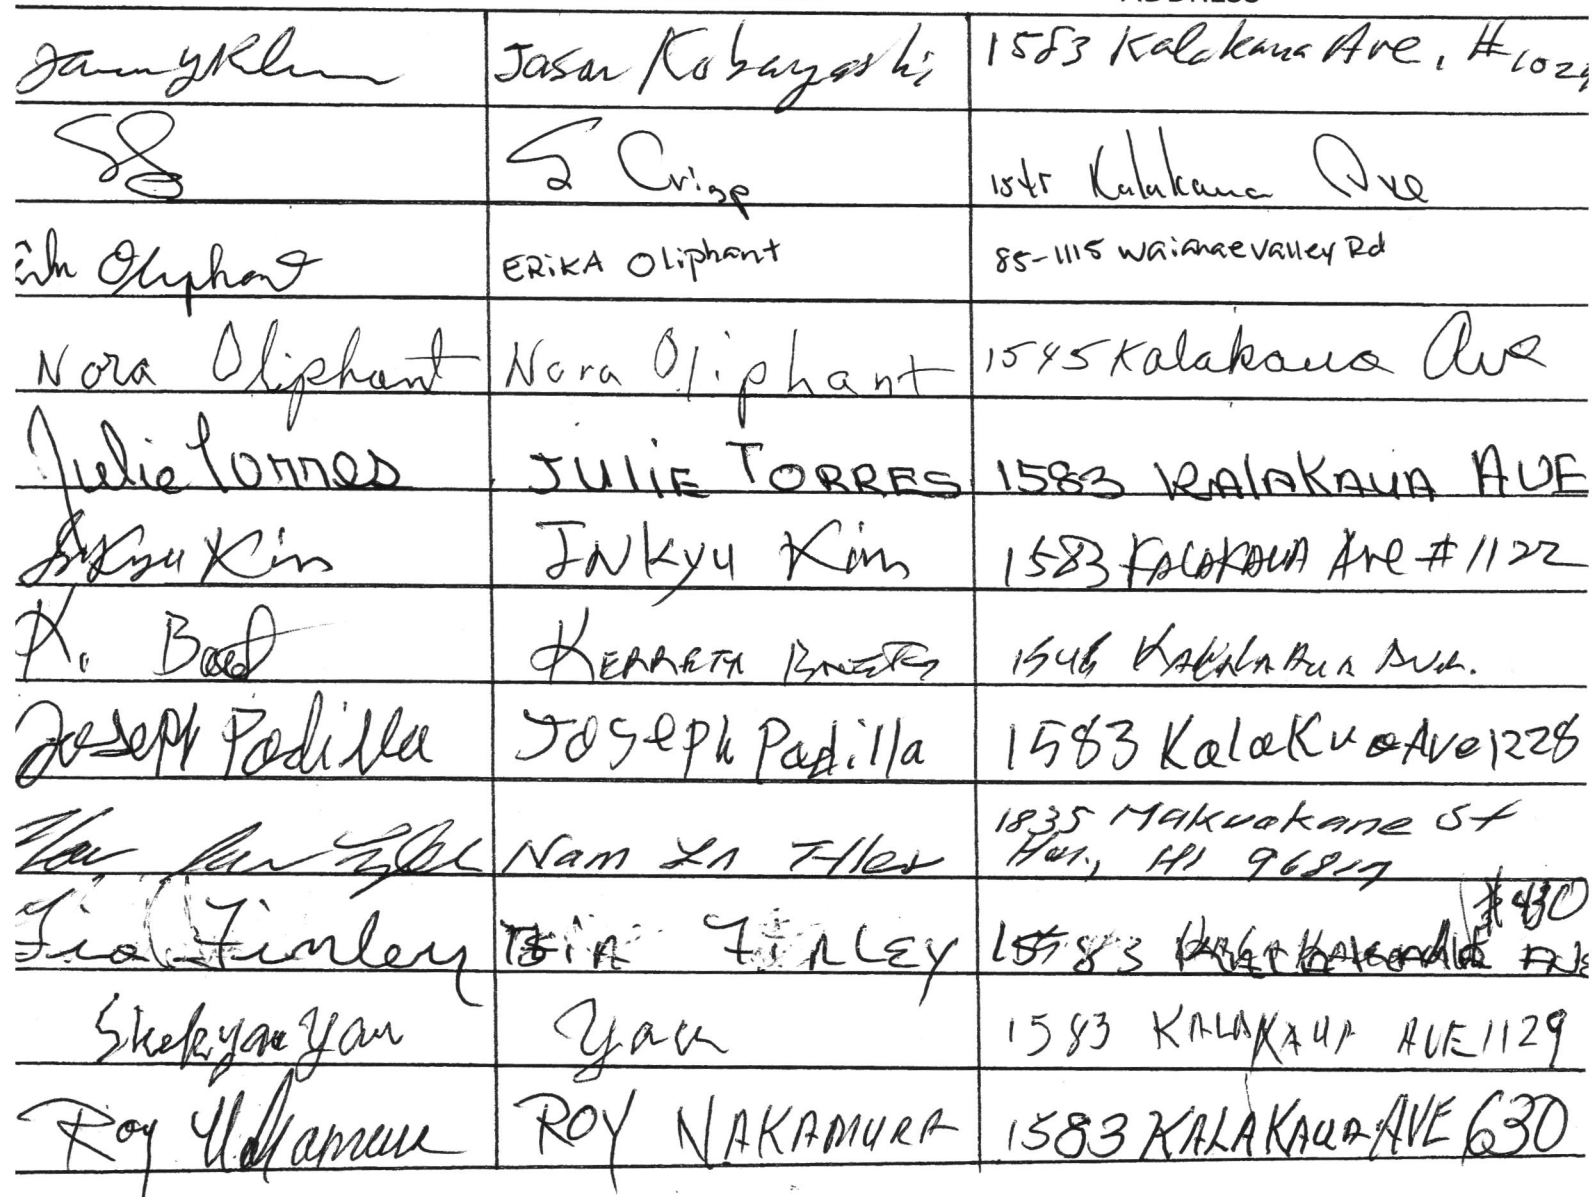 ADDRESS
Jason Kobayashi 1583 Kalakaua Ave, #1024
S Crisp 1545 Kalakaua Ave
Oliphant ERIKA Oliphant 85-1115 Waianae Valley Rd
Nora Oliphant Nora Oliphant 1545 Kalakaua Ave
Julie Torres JULIE TORRES 1583 KALAKAUA AVE
Inkyu Kim INKyu Kim 1583 KALAKAUA Ave #1122
K.
Joseph Padilla Joseph Padilla 1583 KalaKua Ave 1228
Nam 1835 Makuakane St
Hon., HI 96817
#430
Tia Finley Tia FINLEY 1583
Yau Yau 1583 KALAKAUA AVE 1129
Roy Nakamura ROY NAKAMURA 1583 KALAKAUA AVE 630